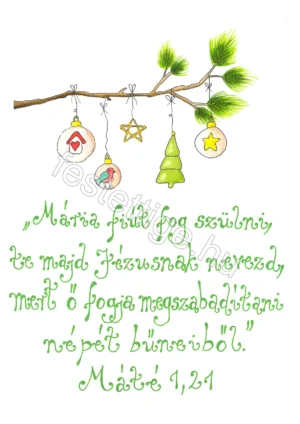 „Mária fiút fog szülni,
te majd Jézusnak nevezd,
mert ő fogja megszabadítani
népét bűneiből.”
Máté 1,21
festettige.hu